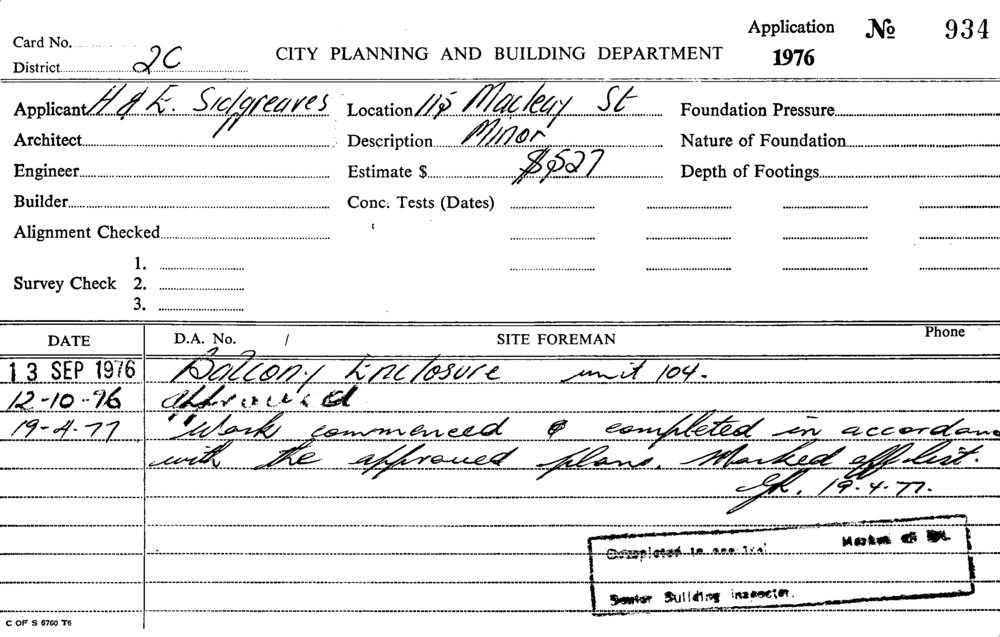 Application № 934
Card No.
District 2C
CITY PLANNING AND BUILDING DEPARTMENT
1976
Applicant H & E. Sidgreaves Location 115 Macleay St Foundation Pressure
Architect Description Minor Nature of Foundation
Engineer Estimate $ $527 Depth of Footings
Builder Conc. Tests (Dates)
Alignment Checked
1.
Survey Check 2.
3.
DATE D.A. No. / SITE FOREMAN Phone
13 SEP 1976 Balcony Enclosure unit 104.
12-10-76 approved
19-4-77 "Work commenced & completed in accordan
with the approved plans. Marked off list.
19-4-77.
Completed
Senior Building Inspector.
C OF S 6760 T6